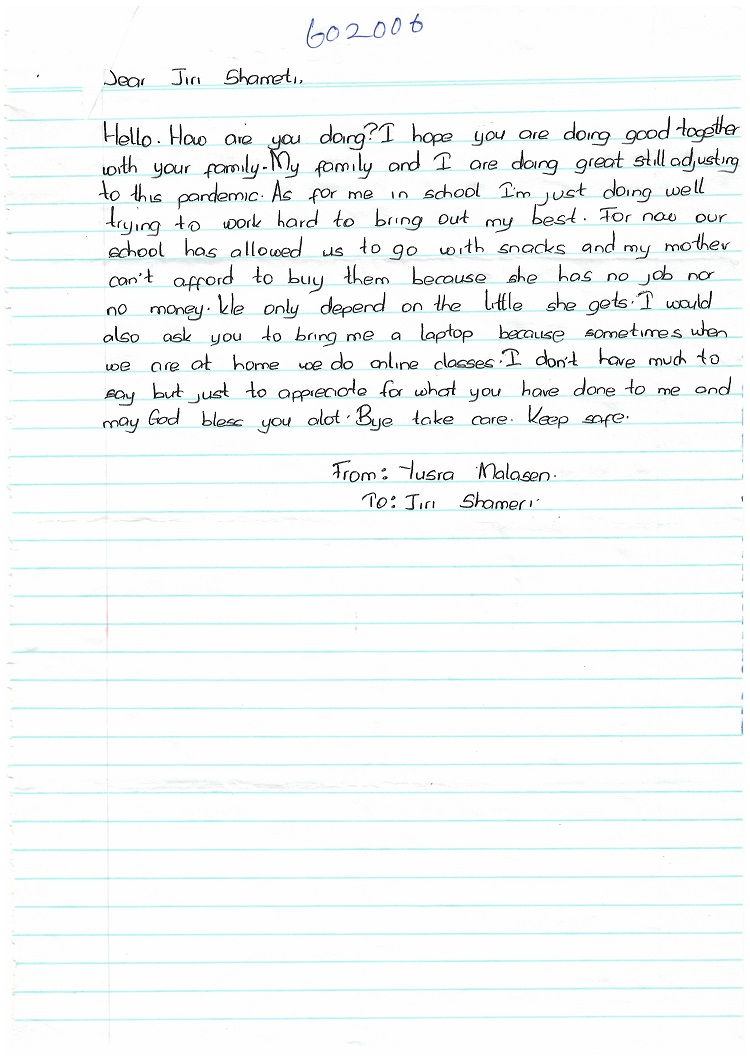 602006
Dear Jiri Shameti,,
Hello. How are you doing? I hope you are doing good together
with your family. My family and I are doing great still adjusting
to this pandemic. As for me in school I'm just doing well
trying to work hard to bring out my best. For now our
school has allowed us to go with snacks and my mother
can't afford to buy them because she has no job nor
no money. We only depend on the little she gets. I would
also ask you to bring me a laptop because sometimes when
we are at home we do online classes. I don't have much to
say but just to appreciate for what you have done to me and
may God bless you alot. Bye take care. Keep safe.
From: Yusra Malasen.
To: Jiri Shameri.